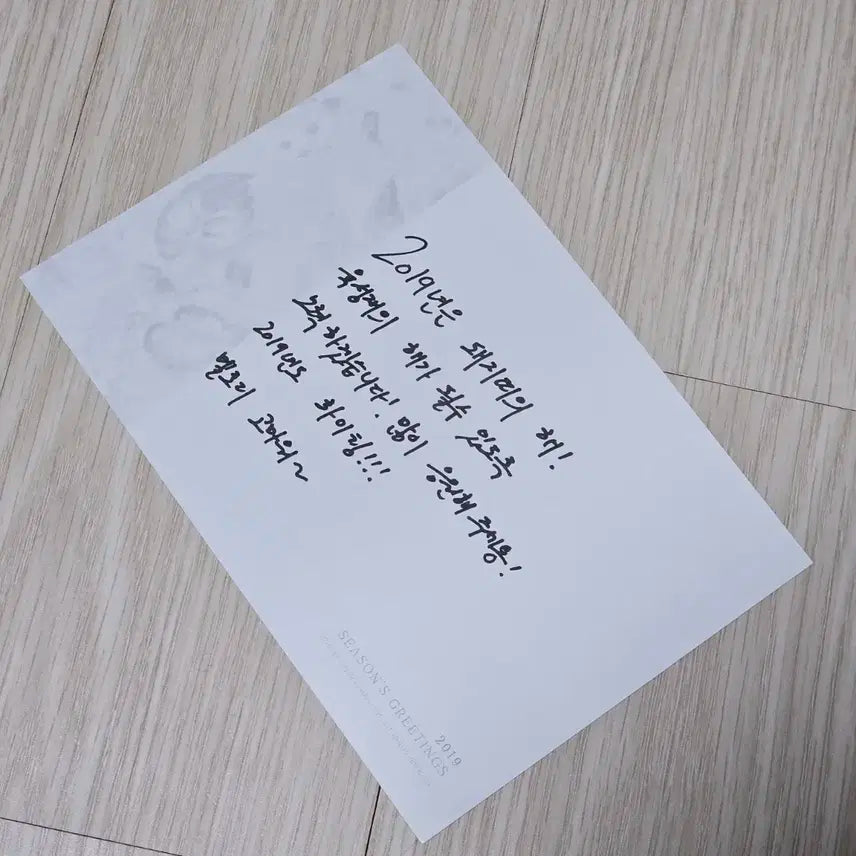 2019년은 돼지띠의 해!
육성재의 해가 될수 있도록
노력 하겠습니다! 많이 응원해 주세용!
2019년도 화이팅!!!
멜로디 고마워~
2019
SEASON'S GREETINGS